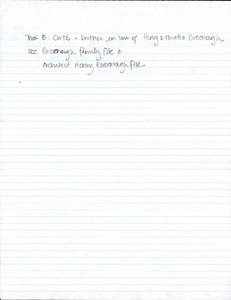 B. Curtis - brother in law of Percy & Horatio Greenough
See Greenough Family File &
Architect Henry Greenough File